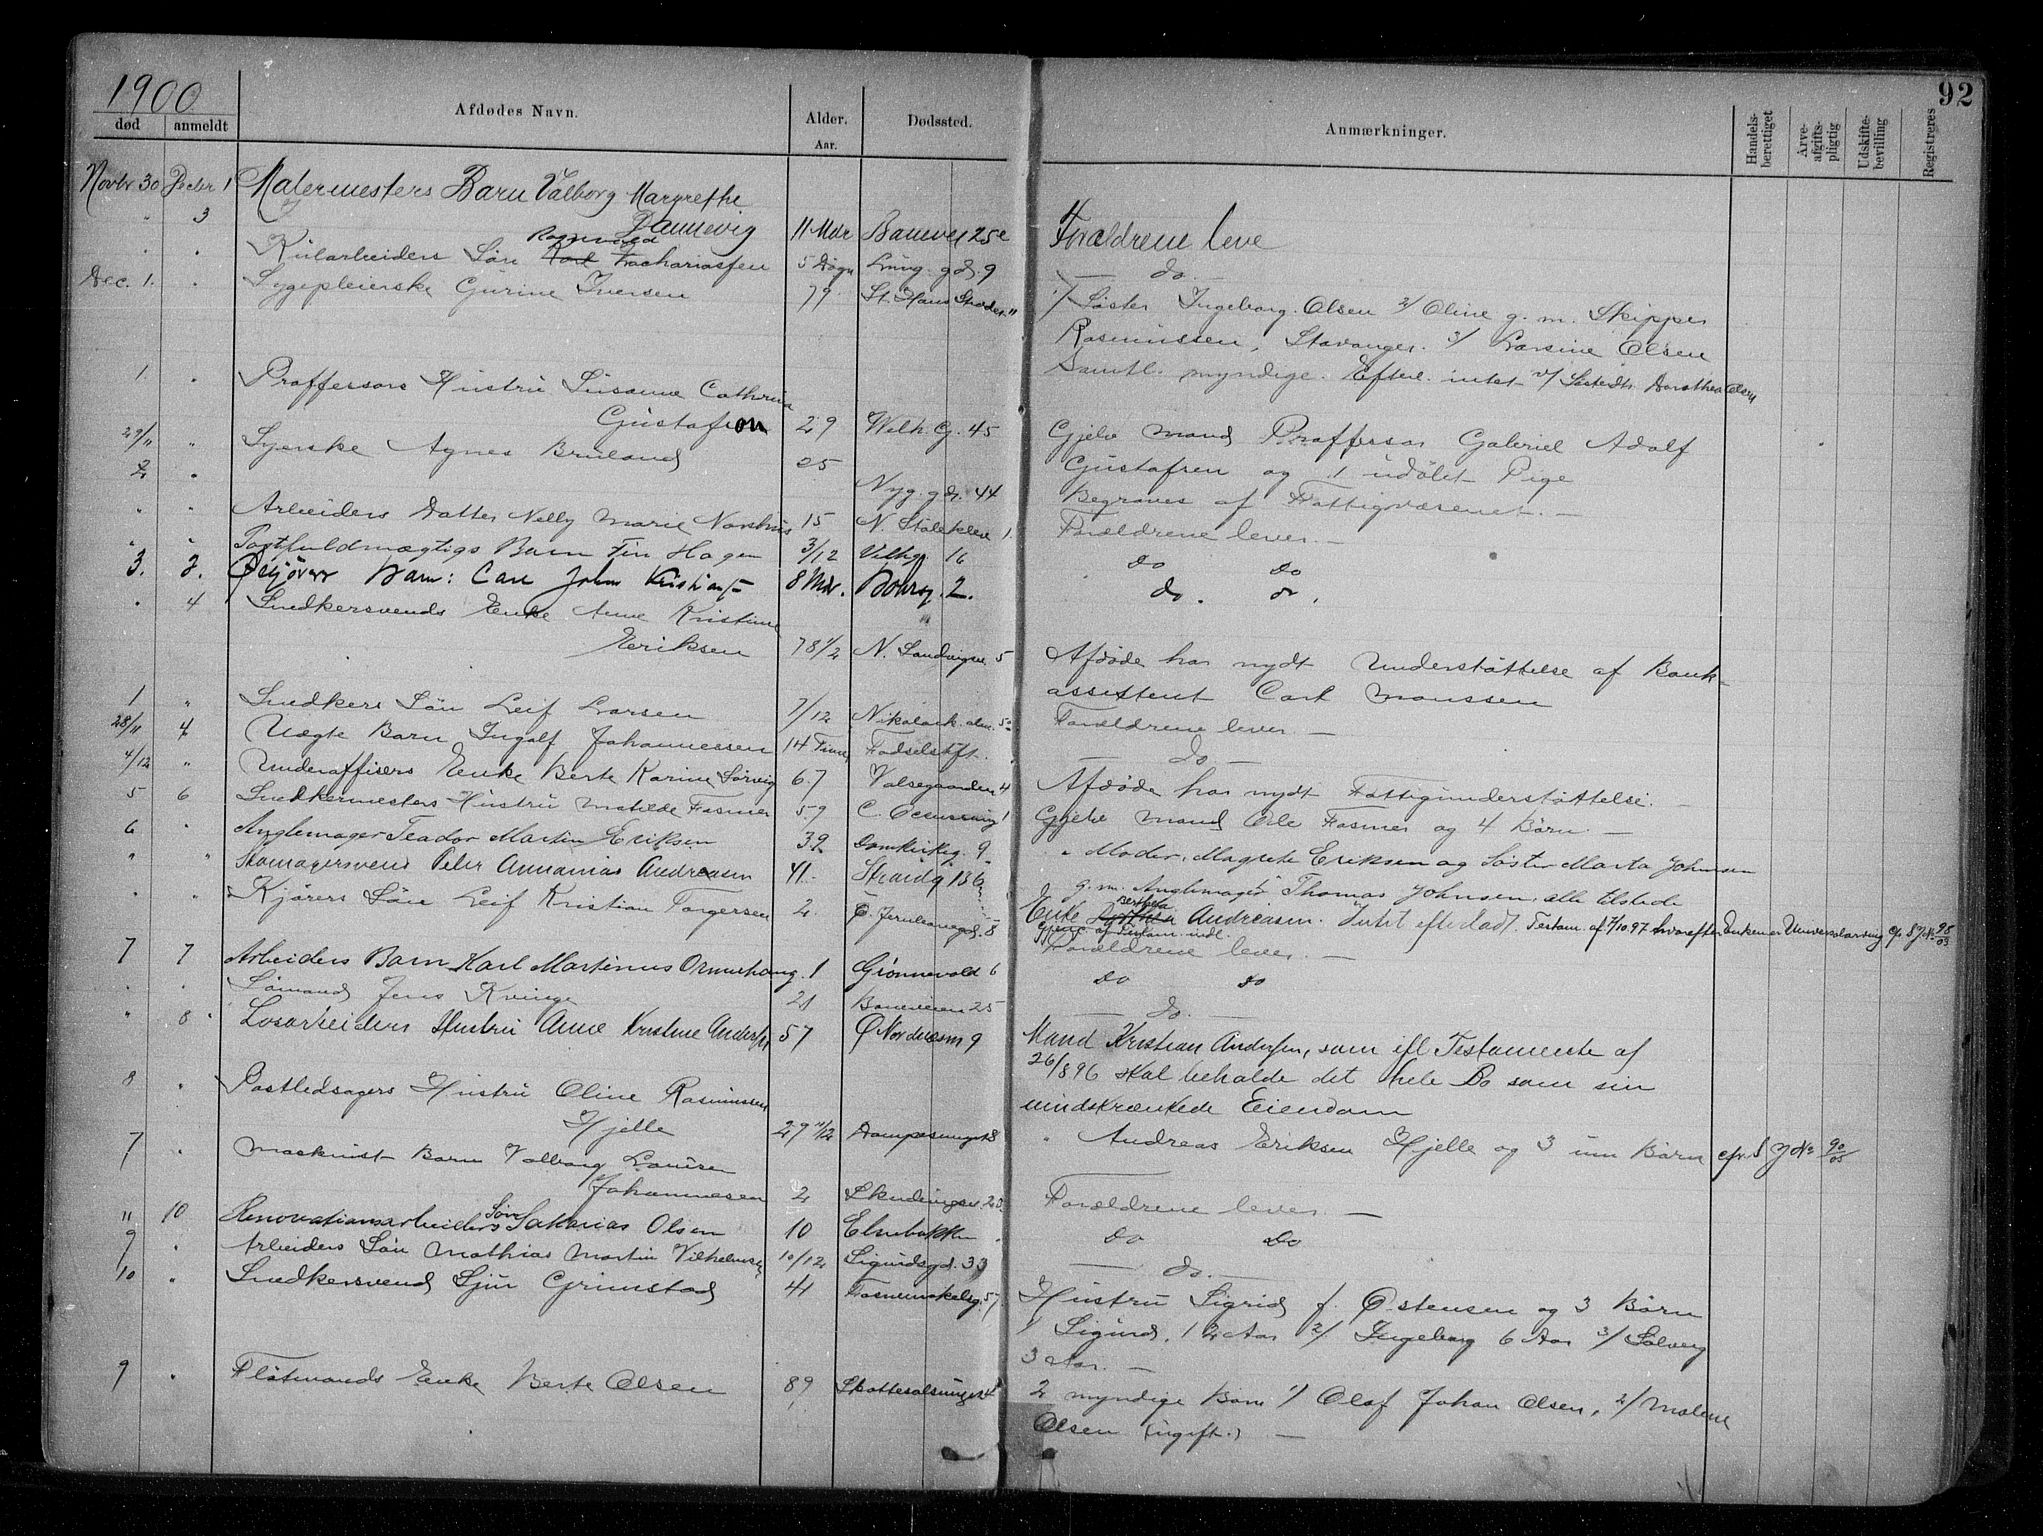 1900
92
død anmeldt Afdødes Navn. Alder. Aar. Dødssted. Anmærkninger. Handels-berettiget Arve-afgifts-pligtig Udskifte-bevilling Registreres
Novbr 30 Decbr 1 Malermesters Barn Valborg Margrethe
" 3 Dannevig 11 Mdr Banevei 25e Forældrene leve
Ragnvald
" " Søn Zachariassen 5 Døgn Lung. gd. 9 — do. —
Dec. 1. " Sygepleierske Gurine Iversen 79 St. Hans Strædet 11 1/ Søster Ingeborg Olsen 2/ Oline g. m. Skipper
Rasmussen, Stavanger. 3/ Larsine Olsen
Samtl. myndige. Efterl. intet
1. " Proffessors Hustru Susanne Cathrina
Gustafson 29 Welh. G. 45 Gjelv mand Proffessor Gabriel Adolf
29/11 " Syerske Agnes Bruland 25 Gustafsen og 1 udølet Pige
2 " Nyg. gd. 44 Begraves af Fattigvæsenet. —
" " Arbeiders Datter Nelly Marie 15 N. Stølekleven 1. Forældrene lever. —
" " Postfuldmægtigs Barn Fin Hagen 3/12 Velhg. 16 do do
3. 3. Barn: Carl Johm Kristians 8 Mdr. 2. do. do.
" 4 Snedkersvends Enke Anne Kristine
Eriksen 78 1/2 N. Sandvigen 5 Afdøde har nydt Understøttelse af Bank-
assistent Carl Monssen
1 " Snedkers Søn Leif Larsen 7/12 Nikolaik. alm. 5 Forældrene lever. —
28/11 4. Uægte Barn Ingolf Johannessen 14 Timer Fødselstift. — do —
4/12 " Underoffisers Enke Berte Karine Sørvig 67 4 Afdøde har nydt Fattigunderstøttelse. —
5 6 Snedkermesters Hustru Matilde Fasmer 59 C. 1 Gjelv Mand Ole Fasmer og 4 Børn. —
6 " Anglemager Teador Martin Eriksen 39 Domkirkeg. 9 " Moder, Magrete Eriksen og Søster Marta Johnsen
" " Skomagersvend Peter Annanias Andreasen 41. Strandg 136 g. m. Anglemager Thomas Johnsen, alle tilstede
Berthea
" " Kjørers Søn Leif Kristian Torgersen 2. 8 Enke Andreasen. Intet efterladt. Testam. af 7/10 97 hvorefter Enken er Universalarving cfr S J No 98/03
Forældrene lever. —
7 7 Arbeiders Barn Karl Martinus Ormehaug. 1 Grønnevold 6 do do
" " Sømand Jens Kvinge 21 Baneveien 25 — do. —
" 8 " Løsarbeiders Hustru Anne Kristine Andersen 57 Ø Nordnæsm 9 Mand Kristian Andersen, som efl Testamente af
26/8 96 skal beholde det hele Bo som sin
uindskrænkede Eiendom
8 " Postledsagers Hustru Oline Rasmussen
Hjelle 29 11/12 Dampesmuget 8 " Andreas Eriksen Hjelle og 3 um Børn cfr. S J No 90/05
7 " Maskinist Barn Valborg Lovise
Johannesen 2 Skudevigen 20. Forældrene lever. —
" 10 Renovationsarbeiders Søn Sakarias Olsen 10 Elnebakken do do
9 " Arbeiders Søn Mathias Martin Vilhelmsen 10/12 Sigurdsgd. 33 — do. —
10 " Snedkersvend Sjur Grimstad 41 57 Hustru Sigrid f. Østensen og 3 Børn
1/ Sigurd, 12 Aar 2/ Ingeborg 6 Aar 3/ Solveig
3 Aar. —
9 " Fløtmands Enke Berte Olsen 89 Skottesalsmuget 4 2 myndige Børn 1/ Olaf Johan Olsen, 2/ Malene
Olsen (ugift.) —